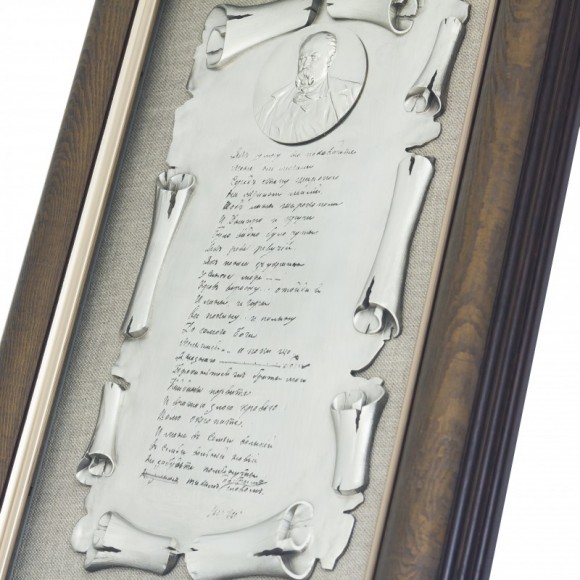 Як умру то поховайте
мене на могилі
Серед степу широкого
на Украині милій
Щоб лани широкополі
И Дніпро и кручи
Було видно було чути
Як реве ревучий
Як понесе з Украини
у синєе море
Кров ворожу... отойді я
И лани и гори
все покину и полину
До самого бога
Молитися... а
Я не знаю
вставайте
Кайдани порвіте
И вражою злою кровъю
Волю окропіте
И мене в семьи великій
В семьи вольній новій
Не забудьте помянути
тихим словом